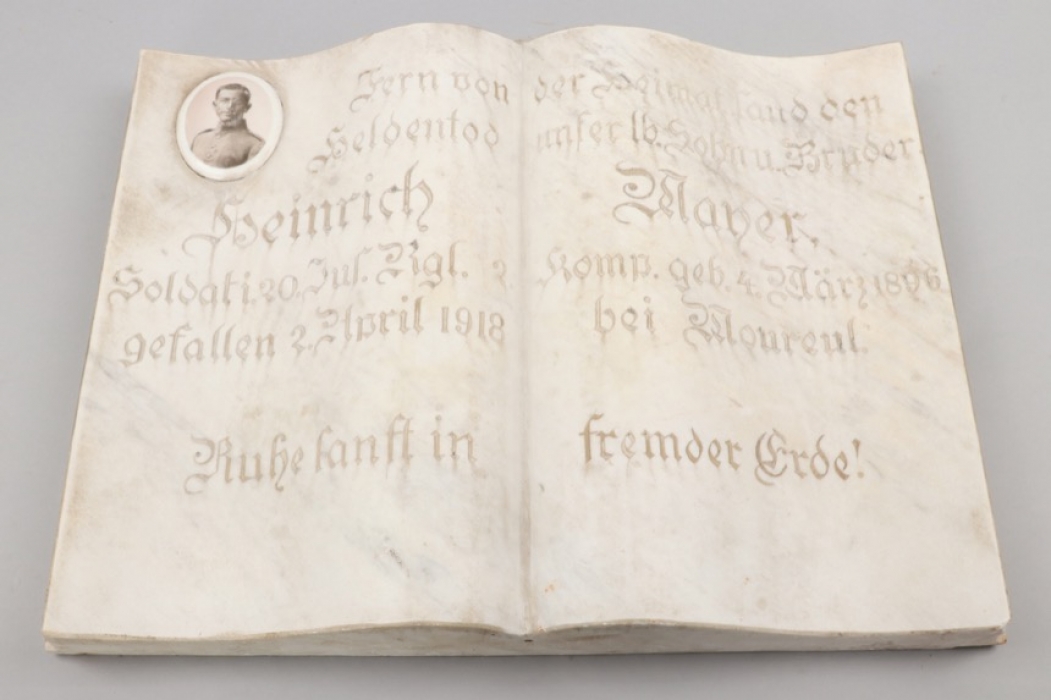 Fern von der Heimat fand den
Heldentod unser lb. Sohn u. Bruder
Heinrich Mayer,
Soldat i. 20. Inf. Rgt. 2. Komp. geb. 4. März 1896
gefallen 2. April 1918 bei Moureul.
Ruhe sanft in fremder Erde!